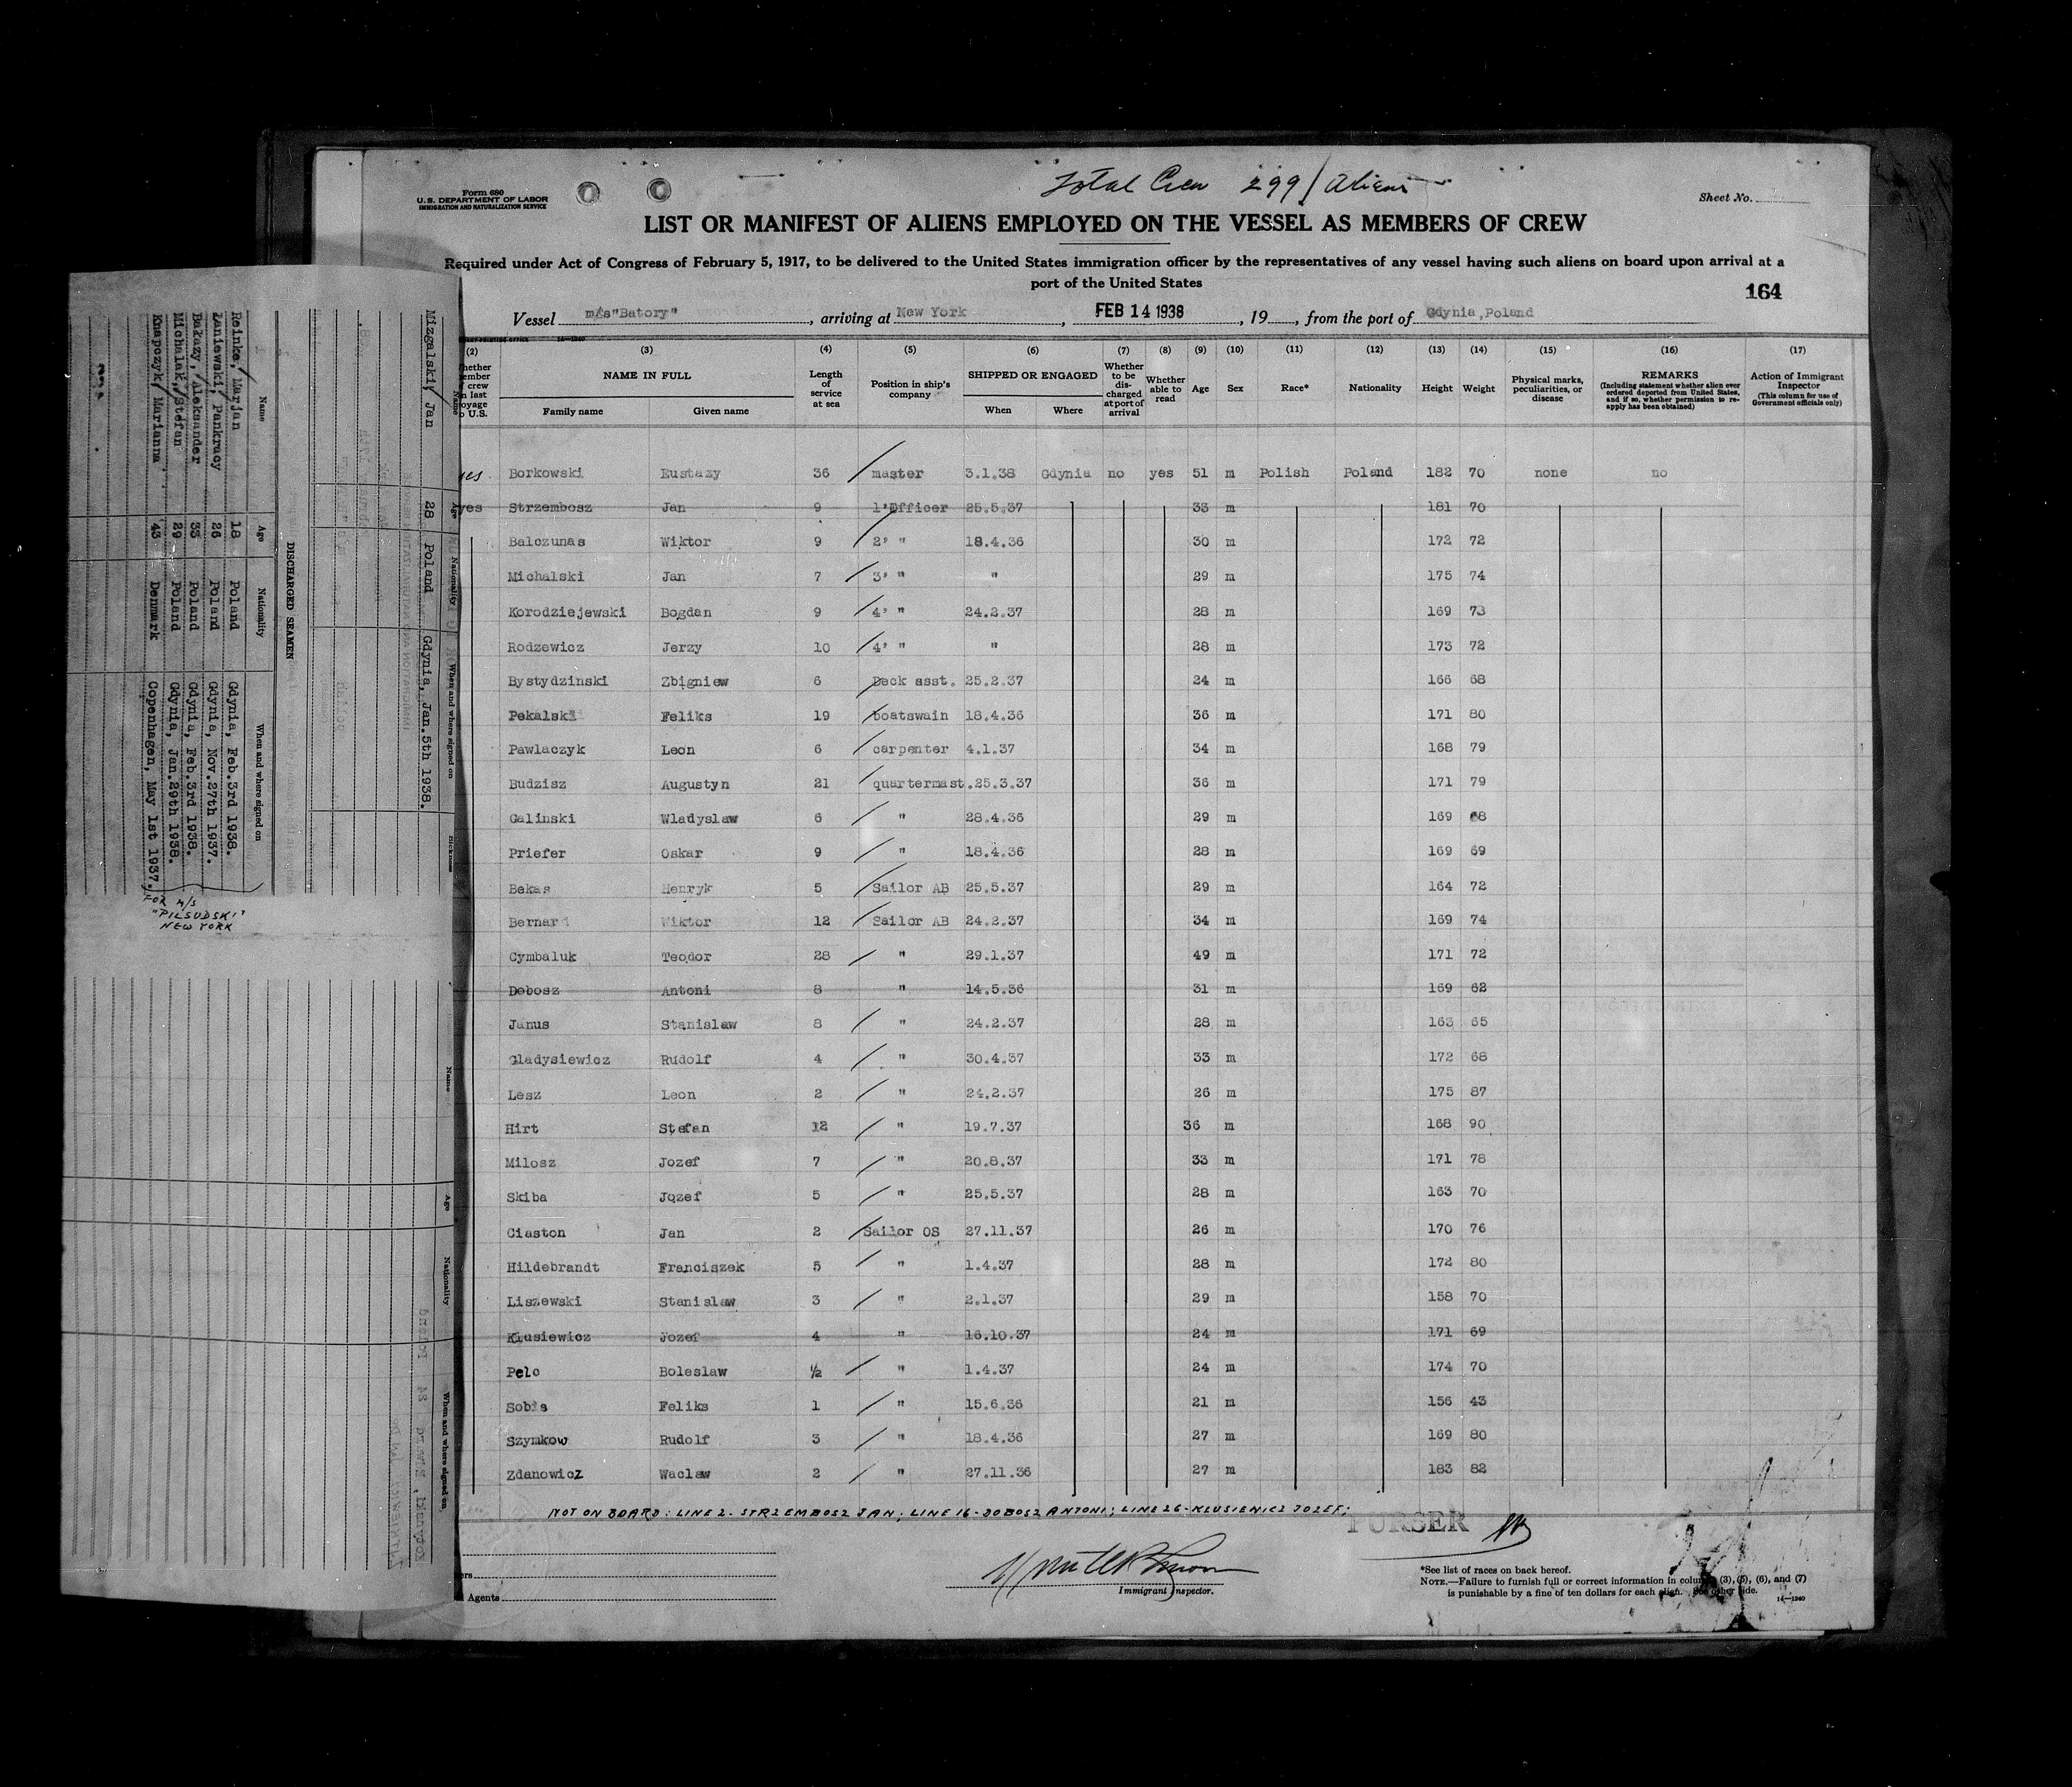 Total Crew 299 / Aliens
Form 680
U.S. DEPARTMENT OF LABOR
IMMIGRATION AND NATURALIZATION SERVICE
Sheet No.
LIST OR MANIFEST OF ALIENS EMPLOYED ON THE VESSEL AS MEMBERS OF CREW
Required under Act of Congress of February 5, 1917, to be delivered to the United States immigration officer by the representatives of any vessel having such aliens on board upon arrival at a
port of the United States
164
Vessel m/s "Batory", arriving at New York, FEB 14 1938, 19, from the port of Gdynia, Poland
(2) (3) (4) (5) (6) (7) (8) (9) (10) (11) (12) (13) (14) (15) (16) (17)
NAME IN FULL Family name Given name
Length of service at sea
Position in ship's company
SHIPPED OR ENGAGED When Where
Whether to be discharged at port of arrival
Whether able to read
Age Sex Race* Nationality Height Weight
Physical marks, peculiarities, or disease
REMARKS
(Including statement whether alien ever ordered deported from United States, and if so, whether permission to reapply has been obtained)
Action of Immigrant Inspector
(This column for use of Government officials only)
yes Borkowski Eustazy 36 master 3.1.38 Gdynia no yes 51 m Polish Poland 182 70 none no
yes Strzembosz Jan 9 1'Officer 25.5.37 33 m 181 70
Balczunas Wiktor 9 2' " 18.4.36 30 m 172 72
Michalski Jan 7 3' " " 29 m 175 74
Korodziejewski Bogdan 9 4' " 24.2.37 28 m 169 73
Rodzewicz Jerzy 10 4' " " 28 m 173 72
Bystydzinski Zbigniew 6 Deck asst. 25.2.37 24 m 166 68
Pekalski Feliks 19 boatswain 18.4.36 36 m 171 80
Pawlaczyk Leon 6 carpenter 4.1.37 34 m 168 79
Budzisz Augustyn 21 quartermast. 25.3.37 36 m 171 79
Galinski Wladyslaw 6 " 28.4.36 29 m 169 68
Priefer Oskar 9 " 18.4.36 28 m 169 69
Bekas Henryk 5 Sailor AB 25.5.37 29 m 164 72
Bernard Wiktor 12 Sailor AB 24.2.37 34 m 169 74
Cymbaluk Teodor 28 " 29.1.37 49 m 171 72
Dobosz Antoni 8 " 14.5.36 31 m 169 62
Janus Stanislaw 8 " 24.2.37 28 m 163 65
Gladysiewicz Rudolf 4 " 30.4.37 33 m 172 68
Lesz Leon 2 " 24.2.37 26 m 175 87
Hirt Stefan 12 " 19.7.37 36 m 168 90
Milosz Jozef 7 " 20.8.37 33 m 171 78
Skiba Jozef 5 " 25.5.37 28 m 163 70
Ciaston Jan 2 Sailor OS 27.11.37 26 m 170 76
Hildebrandt Franciszek 5 " 1.4.37 28 m 172 80
Liszewski Stanislaw 3 " 2.1.37 29 m 158 70
Klusiewicz Jozef 4 " 16.10.37 24 m 171 69
Pelc Boleslaw ½ " 1.4.37 24 m 174 70
Sobis Feliks 1 " 15.6.36 21 m 156 43
Szymkow Rudolf 3 " 18.4.36 27 m 169 80
Zdanowicz Waclaw 2 " 27.11.36 27 m 183 82
NOT ON BOARD: LINE 2- STRZEMBOSZ JAN; LINE 16-DOBOSZ ANTONI; LINE 26-KLUSIEWICZ JOZEF;
PURSER
Immigrant Inspector.
Agents
*See list of races on back hereof.
NOTE.—Failure to furnish full or correct information in columns (3), (5), (6), and (7)
is punishable by a fine of ten dollars for each alien. See other side.
14—1240
Name Age Nationality When and where signed on Sickness
Mizgalski, Jan 28 Poland Gdynia, Jan.5th 1938.
DISCHARGED SEAMEN
Name Age Nationality When and where signed on
Reinke, Marjan 18 Poland Gdynia, Feb.3rd 1938.
Laniewski, Pankracy 26 Poland Gdynia, Nov.27th 1937.
Bakazy, Aleksander 33 Poland Gdynia, Feb.3rd 1938.
Michalak, Stefan 29 Poland Gdynia, Jan.29th 1938.
Knapczyk, Marianna 43 Denmark Copenhagen, May 1st 1937.
FOR M/S
"PILSUDSKI"
NEW YORK
Name Age Nationality When and where signed on